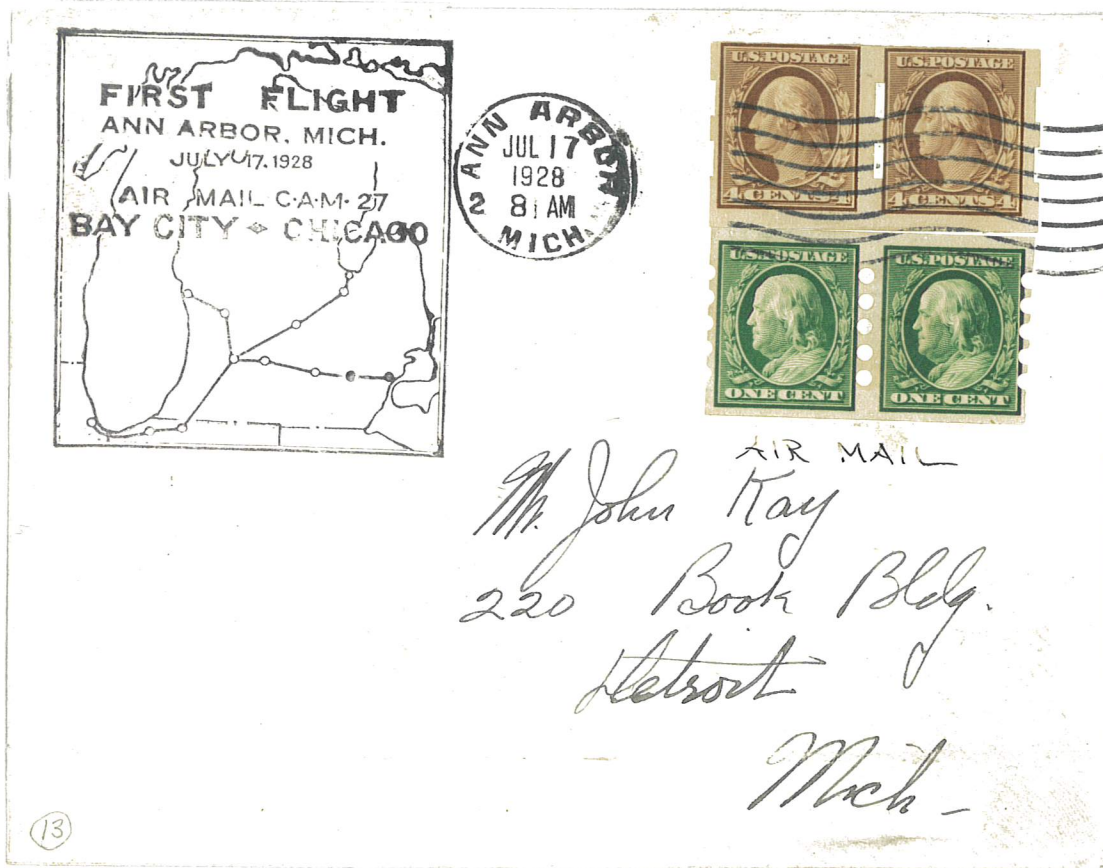 FIRST FLIGHT
ANN ARBOR, MICH.
JULY 17, 1928
AIR MAIL C·A·M· 27
BAY CITY CHICAGO
ANN ARBOR
JUL 17
1928
2 8 AM
MICH.
U.S. POSTAGE
4 CENTS 4
U.S. POSTAGE
4 CENTS 4
U.S. POSTAGE
ONE CENT
U.S. POSTAGE
ONE CENT
AIR MAIL
Mr. John Kay
220 Book Bldg.
Detroit
Mich-
13